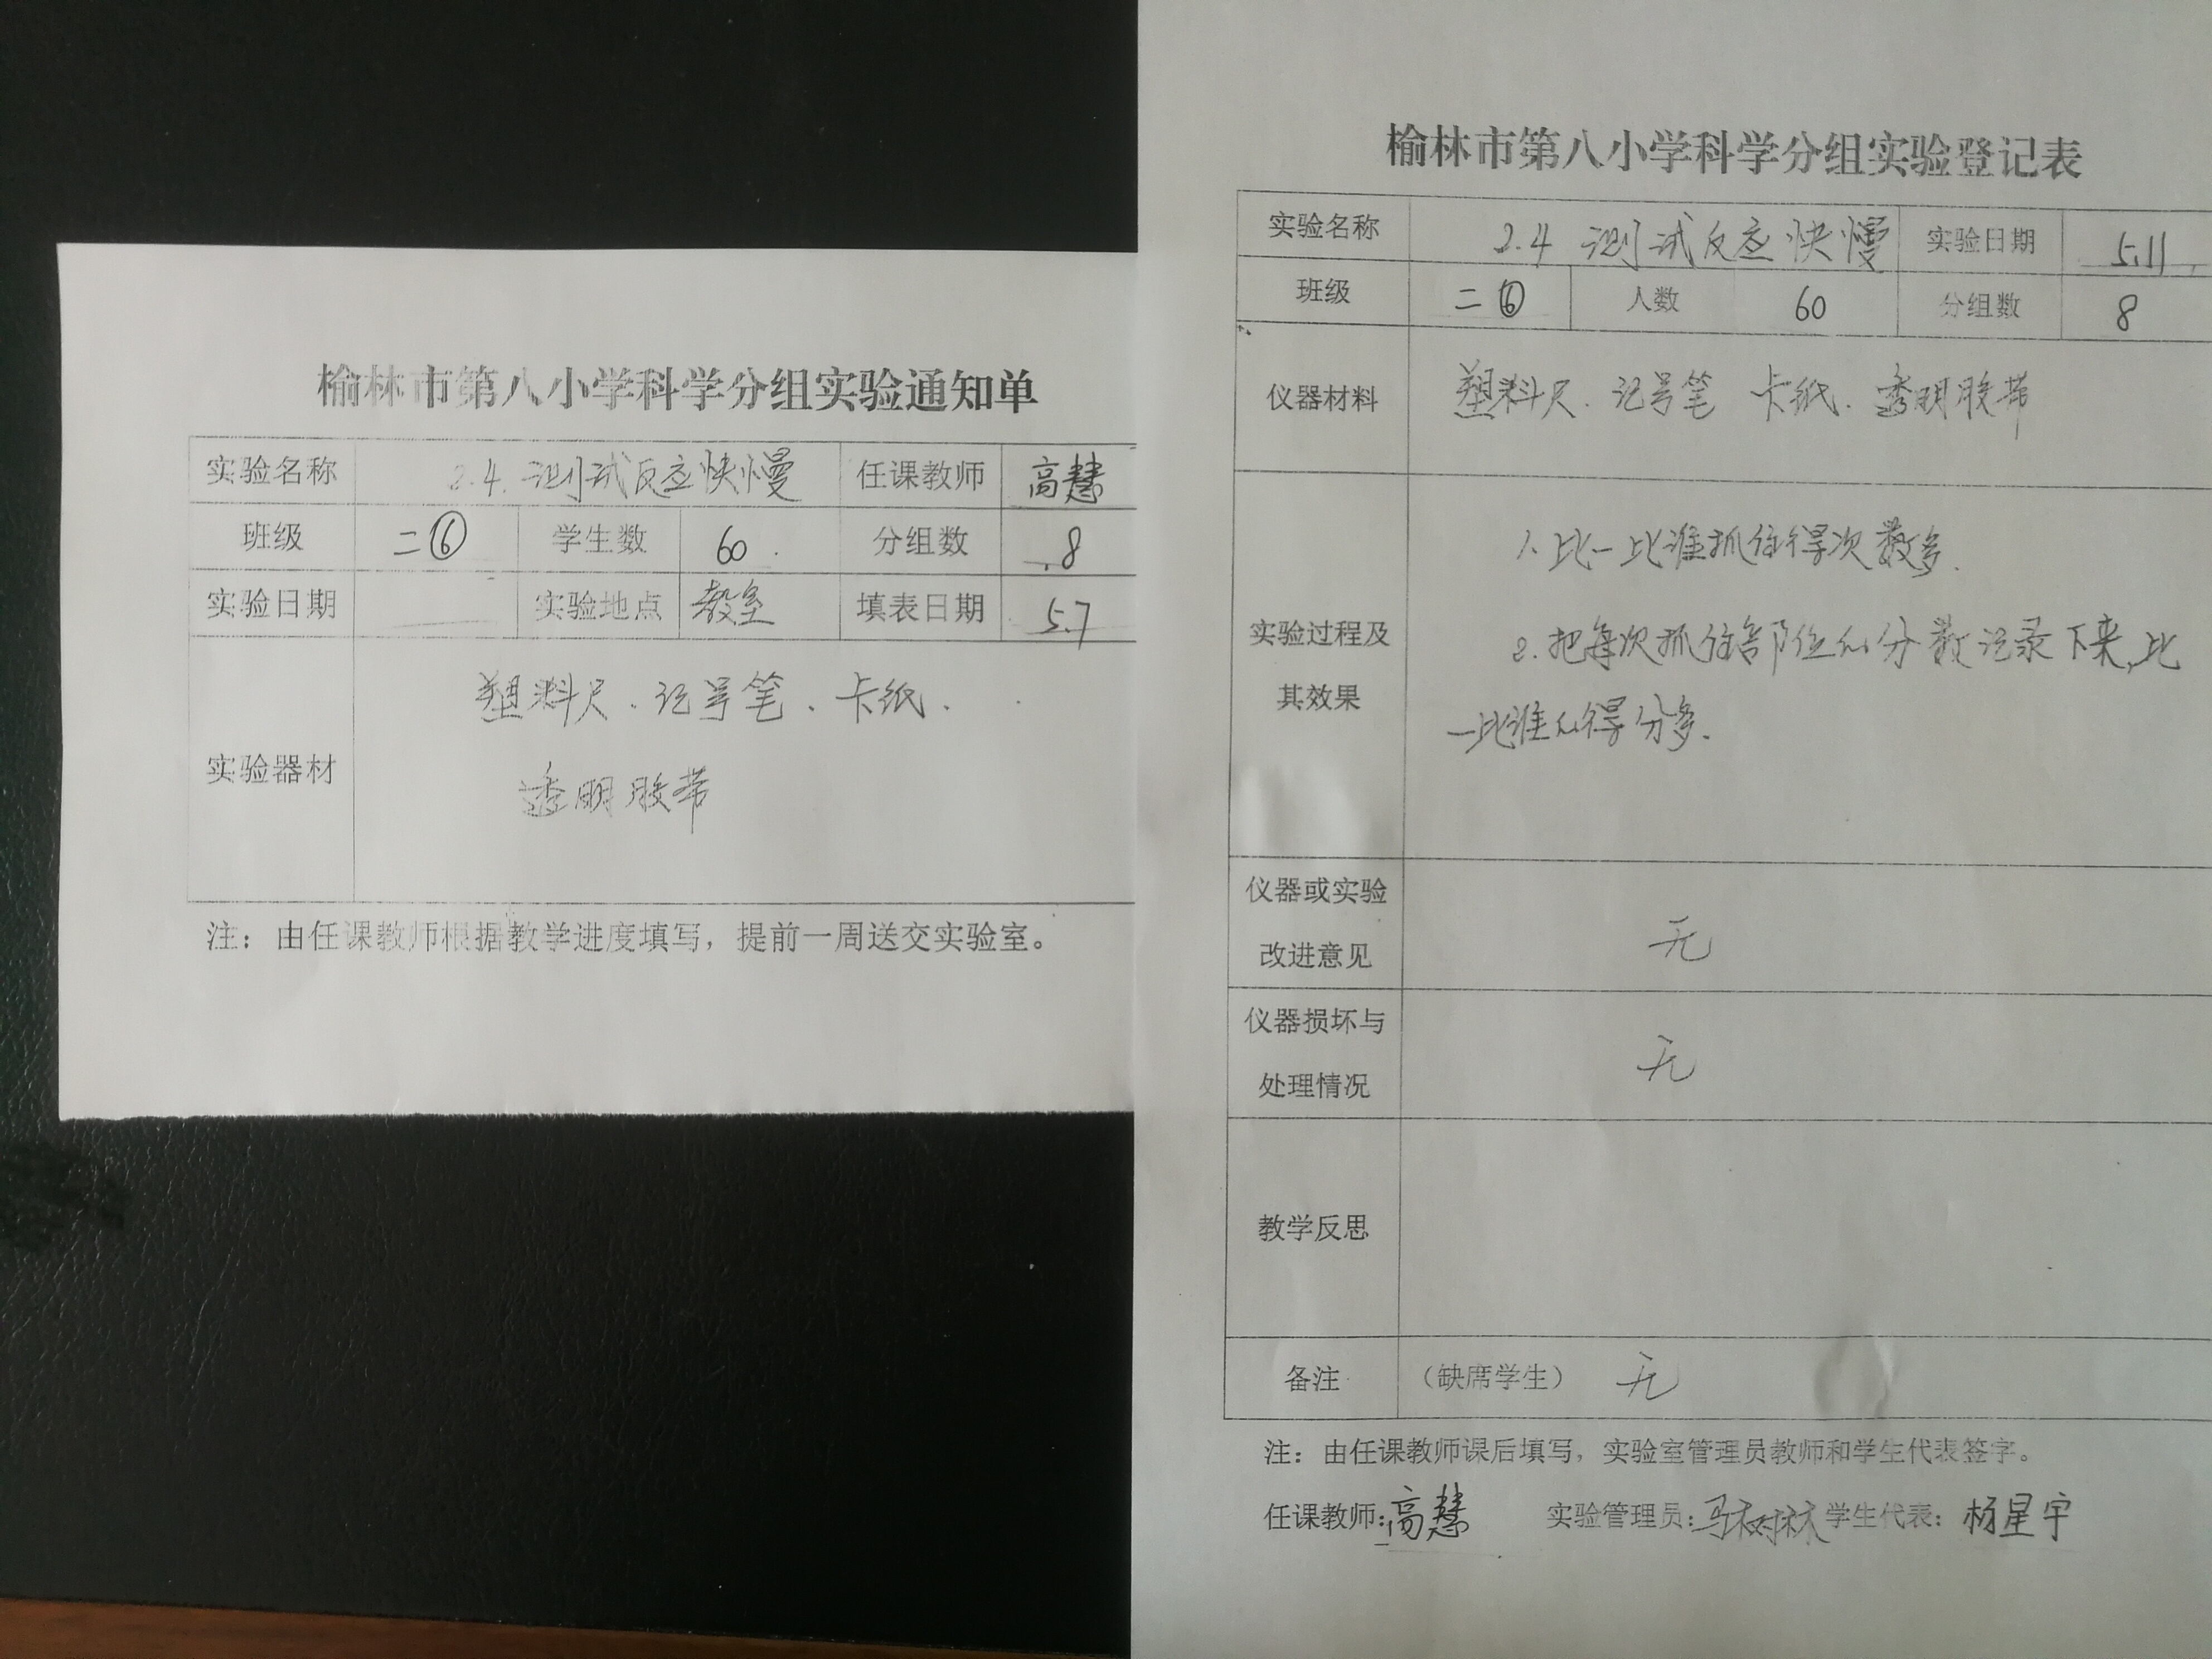 榆林市第八小学科学分组实验通知单
实验名称 2.4. 测试反应快慢 任课教师 高慧
班级 二⑥ 学生数 60 分组数 8
实验日期 实验地点 教室 填表日期 5.7
实验器材 塑料尺、记号笔、卡纸、
透明胶带
注：由任课教师根据教学进度填写，提前一周送交实验室。
榆林市第八小学科学分组实验登记表
实验名称 2.4 测试反应快慢 实验日期 5.11
班级 二⑥ 人数 60 分组数 8
仪器材料 塑料尺、记号笔 卡纸、透明胶带
1、比一比谁抓住得次数多.
实验过程及 2.把每次抓住部位的分数记录下来,比
其效果 一比谁的得分多.
仪器或实验
改进意见 无
仪器损坏与
处理情况 无
教学反思
备注 （缺席学生） 无
注：由任课教师课后填写，实验室管理员教师和学生代表签字。
任课教师：高慧 实验管理员：马树林 学生代表：杨星宇